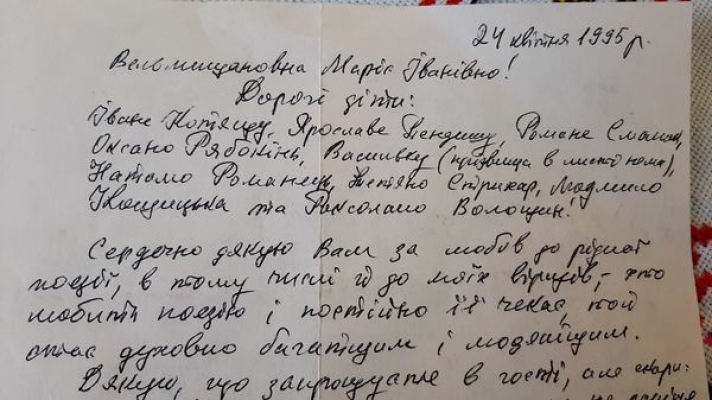 24 квітня 1995 р.
Вельмишановна Маріє Іванівно!
Дорогі діти:
Іване Котянду, Ярославе Бендищу, Романе Смалюк,
Оксано Рябокінь, Васильку (прізвища в листі нема),
Наталю Романець, Тетяно Стрихар, Людмило
Іващицька та Роксолано Волощин!
Сердечно дякую Вам за любов до рідної
поезії, в тому числі й до моїх віршів, – хто
любить поезію і постійно її чекає, той
стає духовно багатшим і людянішим.
Дякую, що запрошуєте в гості, але скори: